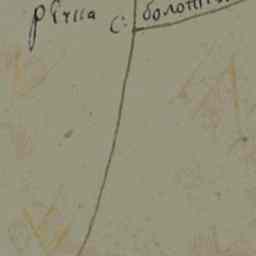 рѣчка с: болотн